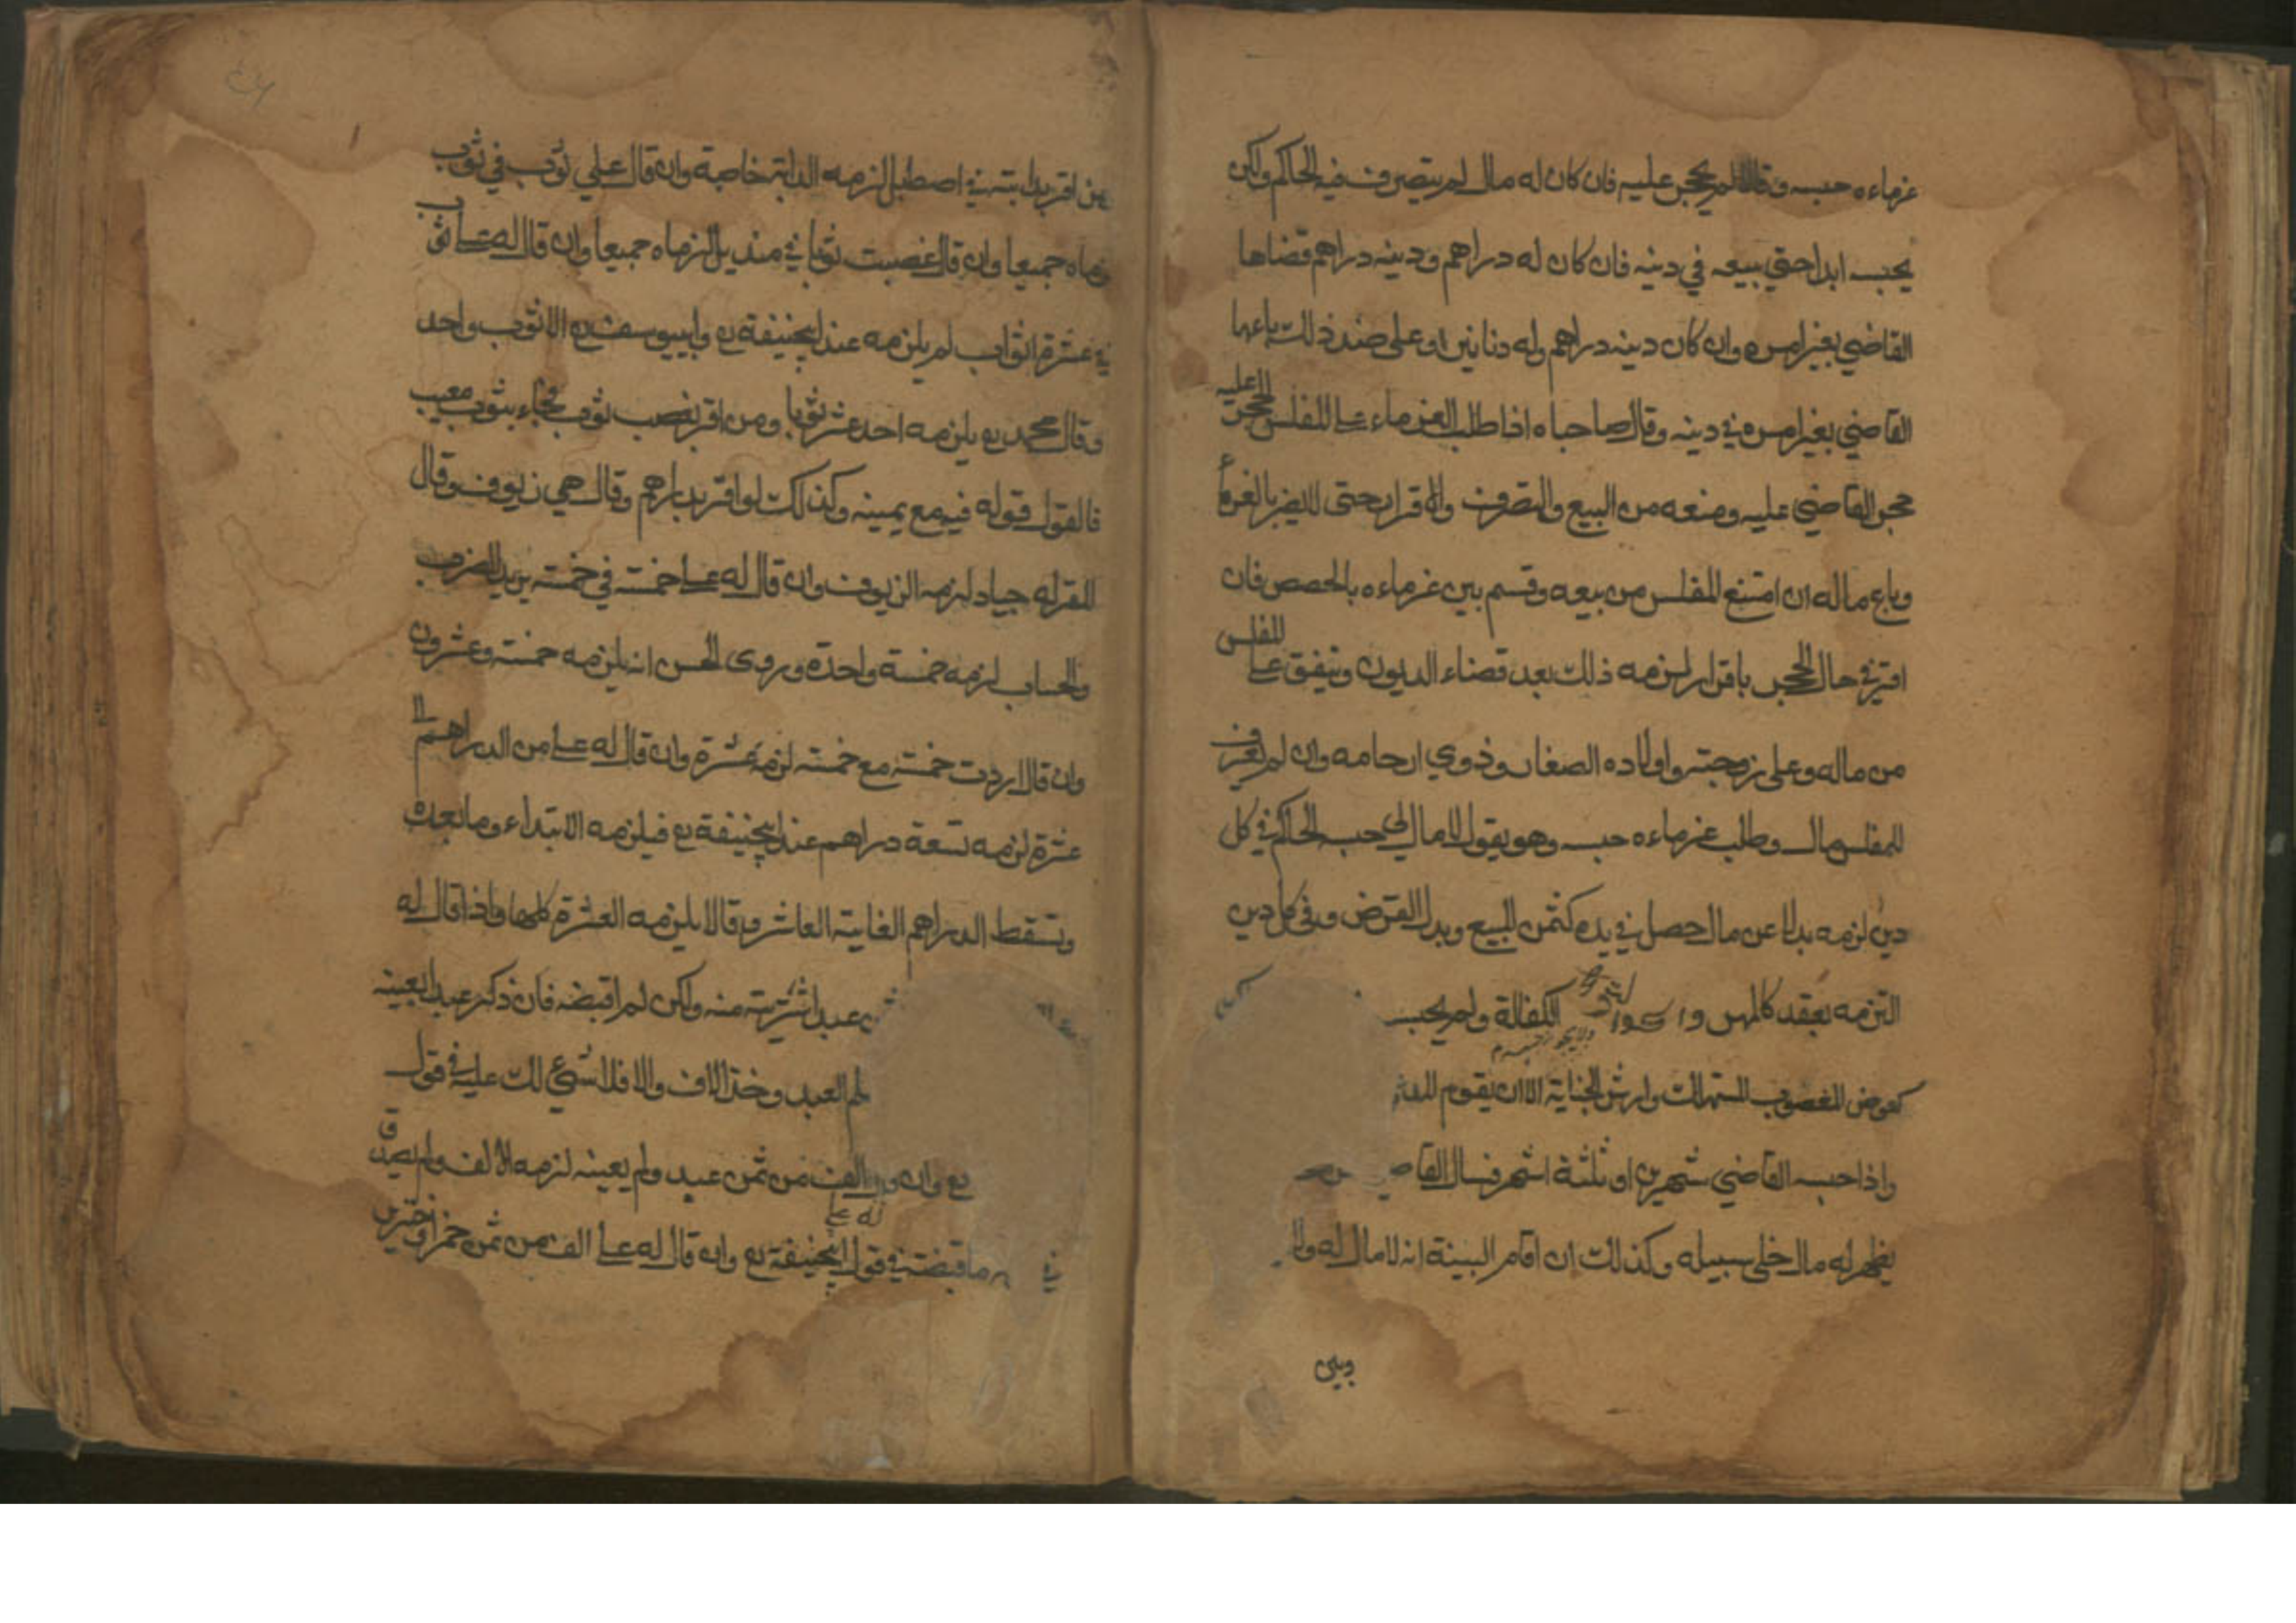 غرماءه حبسه وقالا لم يحجر عليه فان كان له مال لم يتصرف فيه الحاكم ولكن
يحبسه ابدا حتي يبيعه في دينه فان كان له دراهم ودينه دراهم قضاها
القاضي بغير امره وان كان دينه دراهم وله دنانير او على ضد ذلك باعها
القاضي بغير امره في دينه وقال صاحباه اذا طلب الغرماء على المفلس الحجر عليه
حجر القاضي عليه ومنعه من البيع والتصرف والاقرار حتى لا يضر بالغرماء
وباع ماله ان امتنع المفلس من بيعه وقسم بين غرماءه بالحصص فان
اقر في حال الحجر باقرار لزمه ذلك بعد قضاء الديون وينفق على المفلس
من ماله وعلى زوجته واولاده الصغار وذوي ارحامه وان لم يعرف
للمفلس مال وطلب غرماءه حبسه وهو يقول لا مال لي حبسه الحاكم في كل
دين لزمه بدلا عن مال حصل في يده كثمن المبيع وبدل القرض وفي كل دين
التزمه بعقد كالمهر و الكفالة ولم يحبسه
كعوض المغصوب المستهلك وارش الجناية الا ان يقوم
واذا حبسه القاضي شهرين او ثلثة اشهر فسال القاضي
يظهر له مال خلى سبيله وكذلك ان اقام البينة انه لا مال له ولا
وبين
من اقر بدابته في اصطبل لزمه الدابة خاصة وان قال علي ثوب في ثوب
لزماه جميعا وان قال غصبت ثوبا في منديل لزماه جميعا وان قال له على ثوب
في عشرة اثواب لم يلزمه عند ابيحنيفة رح وابييوسف رح الا ثوب واحد
وقال محمد رح يلزمه احد عشر ثوبا ومن اقر بغصب ثوب فجاء بثوب معيب
فالقول قوله فيه مع يمينه وكذلك لو اقر بدراهم وقال هي زيوف وقال
المقر له جياد لزمه الزيوف وان قال له على خمسة في خمسة يريد الضرب
والحساب لزمه خمسة واحدة وروى الحسن انه يلزمه خمسة وعشرون
وان قال اردت خمسة مع خمسة لزمه عشرة وان قال له على من الدراهم الى
عشرة لزمه تسعة دراهم عند ابيحنيفة رح فيلزمه الابتداء وما بعده
وتسقط الدراهم الغاية العاشر وقالا يلزمه العشرة كلها واذا قال له
عبد اشتريته منه ولكن لم اقبضه فان ذكر عبدا بعينه
العبد وخذ الالف والا فلا شيء لك عليه في قول
رح وان الف من ثمن عبد ولم يعينه لزمه الالف ولم يصدق
في ما قبضته في قول ابيحنيفة رح وان قال له على الف من ثمن خمر او خنزير